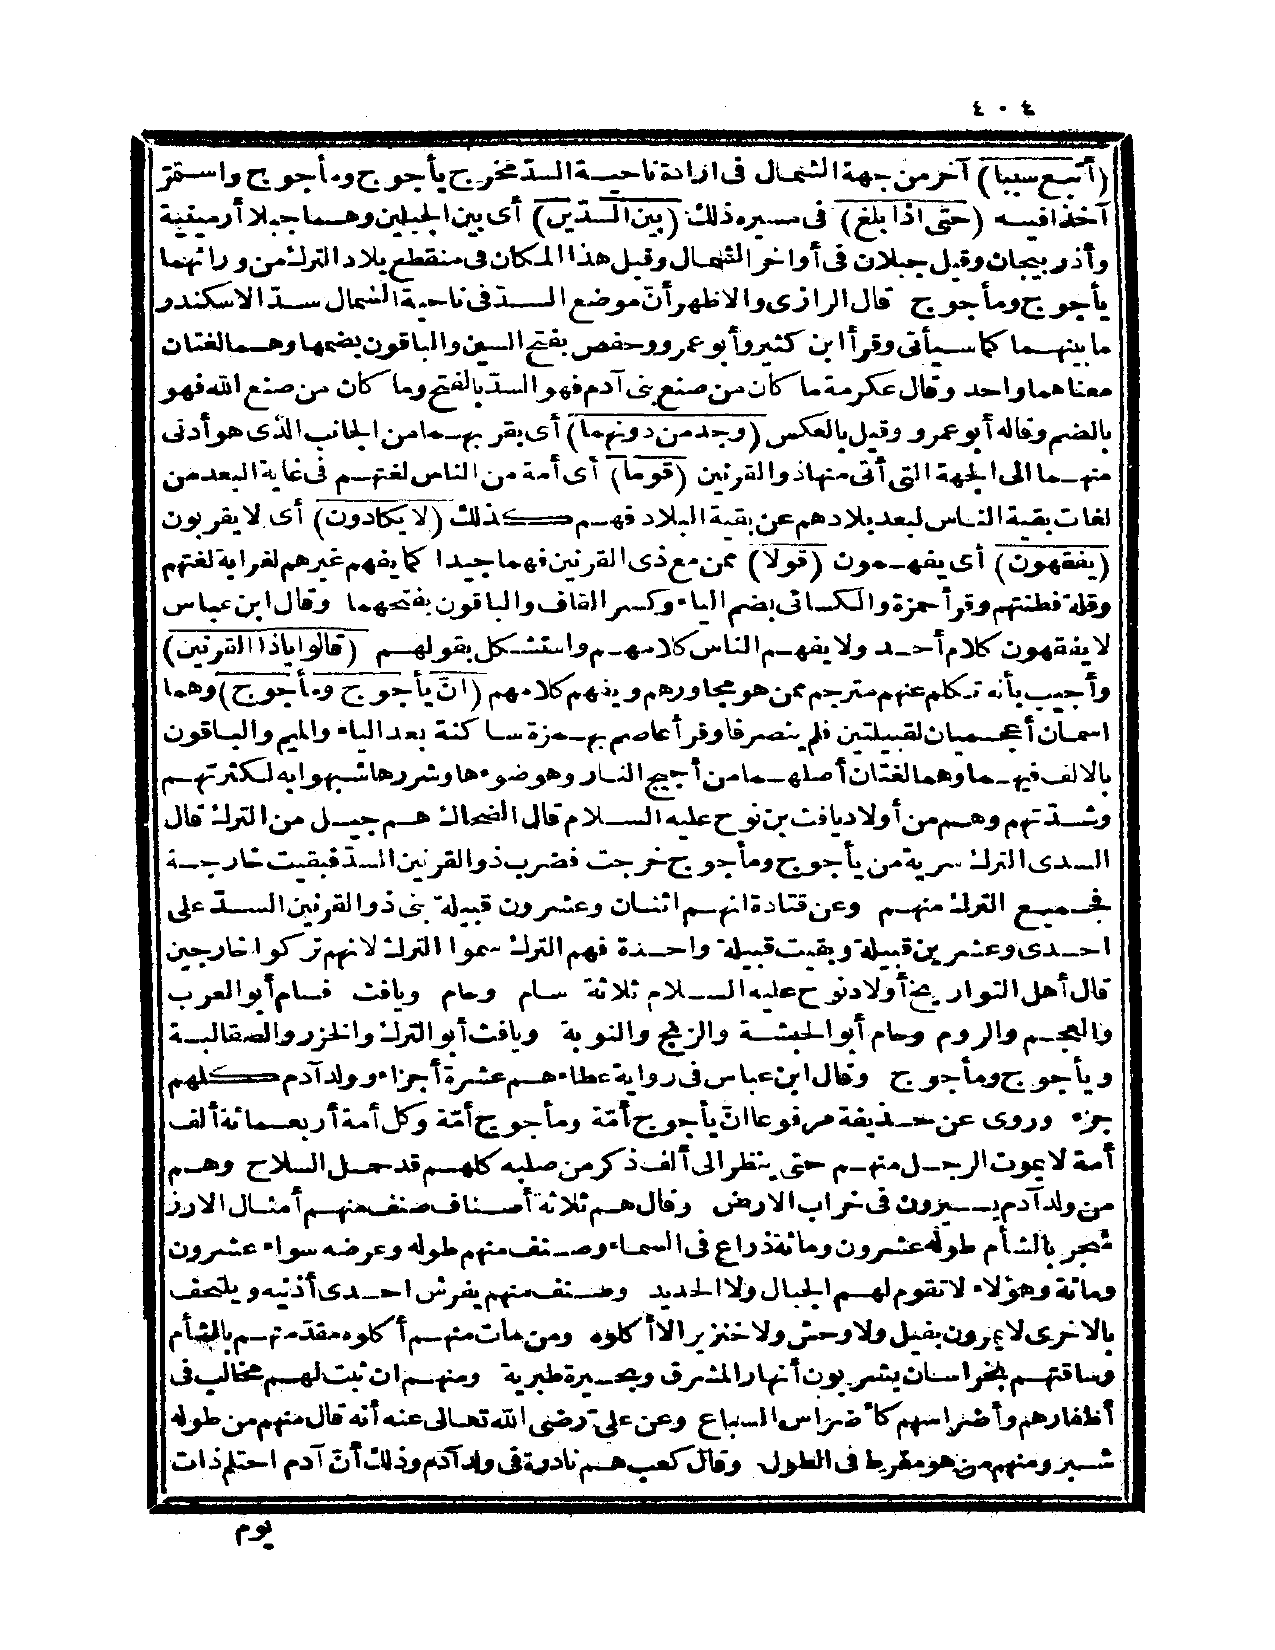 ٤٠٤
(أتبع سببا) آخر من جهة الشمال في ارادة ناحية السدّ مخرج يأجوج ومأجوج واستمرّ
آخذا فيه (حتى اذا بلغ) في مسيره ذلك (بين السدّين) أي بين الجبلين وهما جبلا أرمينية
وأذربيجان وقيل جبلان في أواخر الشمال وقيل هذا المكان في منقطع بلاد الترك من ورائهما
يأجوج ومأجوج قال الرازي والاظهر أنّ موضع السدّ في ناحية الشمال سدّ الاسكندر
ما بينهما كما سيأتي وقرأ ابن كثير وأبو عمرو وحفص بفتح السين والباقون بضمها وهما لغتان
معناهما واحد وقال عكرمة ما كان من صنع بني آدم فهو السدّ بالفتح وما كان من صنع الله فهو
بالضم وقاله أبو عمرو وقيل بالعكس (وجد من دونهما) أي بقربهما من الجانب الذي هو أدنى
منهما الى الجهة التي أتى منها ذو القرنين (قوما) أي أمة من الناس لغتهم في غاية البعد من
لغات بقية الناس لبعد بلادهم عن بقية البلاد فهم كذلك (لا يكادون) أي لا يقربون
(يفقهون) أي يفهمون (قولا) ممن مع ذي القرنين فهما جيدا كما يفهم غيرهم لغرابة لغتهم
وقلة فطنتهم وقرأ حمزة والكسائي بضم الياء وكسر القاف والباقون بفتحهما وقال ابن عباس
لا يفقهون كلام أحد ولا يفهم الناس كلامهم واستشكل بقولهم (قالوا ياذا القرنين)
وأجيب بأنه تكلم عنهم مترجم ممن هو مجاورهم ويفهم كلامهم (انّ يأجوج ومأجوج) وهما
اسمان أعجميان لقبيلتين فلم ينصرفا وقرأ عاصم بهمزة ساكنة بعد الياء والميم والباقون
بالالف فيهما وهما لغتان أصلهما من أجيج النار وهو ضوءها وشررها شبهوا به لكثرتهم
وشدتهم وهم من أولاد يافث بن نوح عليه السلام قال الضحاك هم جيل من الترك قال
السدى الترك سرية من يأجوج ومأجوج خرجت فضرب ذو القرنين السدّ فبقيت خارجة
فجميع الترك منهم وعن قتادة انهم اثنان وعشرون قبيلة بنى ذو القرنين السدّ على
احدى وعشرين قبيلة وبقيت قبيلة واحدة فهم الترك سموا الترك لانهم تركوا خارجين
قال أهل التواريخ أولاد نوح عليه السلام ثلاثة سام وحام ويافث فسام أبو العرب
والعجم والروم وحام أبو الحبشة والزنج والنوبة ويافث أبو الترك والخزر والصقالبة
ويأجوج ومأجوج وقال ابن عباس في رواية عطاء هم عشرة أجزاء وولد آدم كلهم
جزء وروى عن حذيفة مرفوعا انّ يأجوج أمّة ومأجوج أمّة وكل أمة أربعمائة ألف
أمة لا يموت الرجل منهم حتى ينظر الى ألف ذكر من صلبه كلهم قد حمل السلاح وهم
من ولد آدم يسيرون في خراب الارض وقال هم ثلاثة أصناف صنف منهم أمثال الارز
شجر بالشأم طوله عشرون ومائة ذراع في السماء وصنف منهم طوله وعرضه سواء عشرون
ومائة وهؤلاء لا تقوم لهم الجبال ولا الحديد وصنف منهم يفرش احدى أذنيه ويلتحف
بالاخرى لا يمرون بفيل ولا وحش ولا خنزير الا أكلوه ومن مات منهم أكلوه مقدمتهم بالشأم
وساقتهم بخراسان يشربون أنهار المشرق وبحيرة طبرية ومنهم ان نبت لهم مخالب في
أظفارهم وأضراسهم كأضراس السباع وعن علىّ رضى الله تعالى عنه أنه قال منهم من طوله
شبر ومنهم من هو مفرط في الطول وقال كعب هم نادرة في ولد آدم وذلك أنّ آدم احتلم ذات
يوم